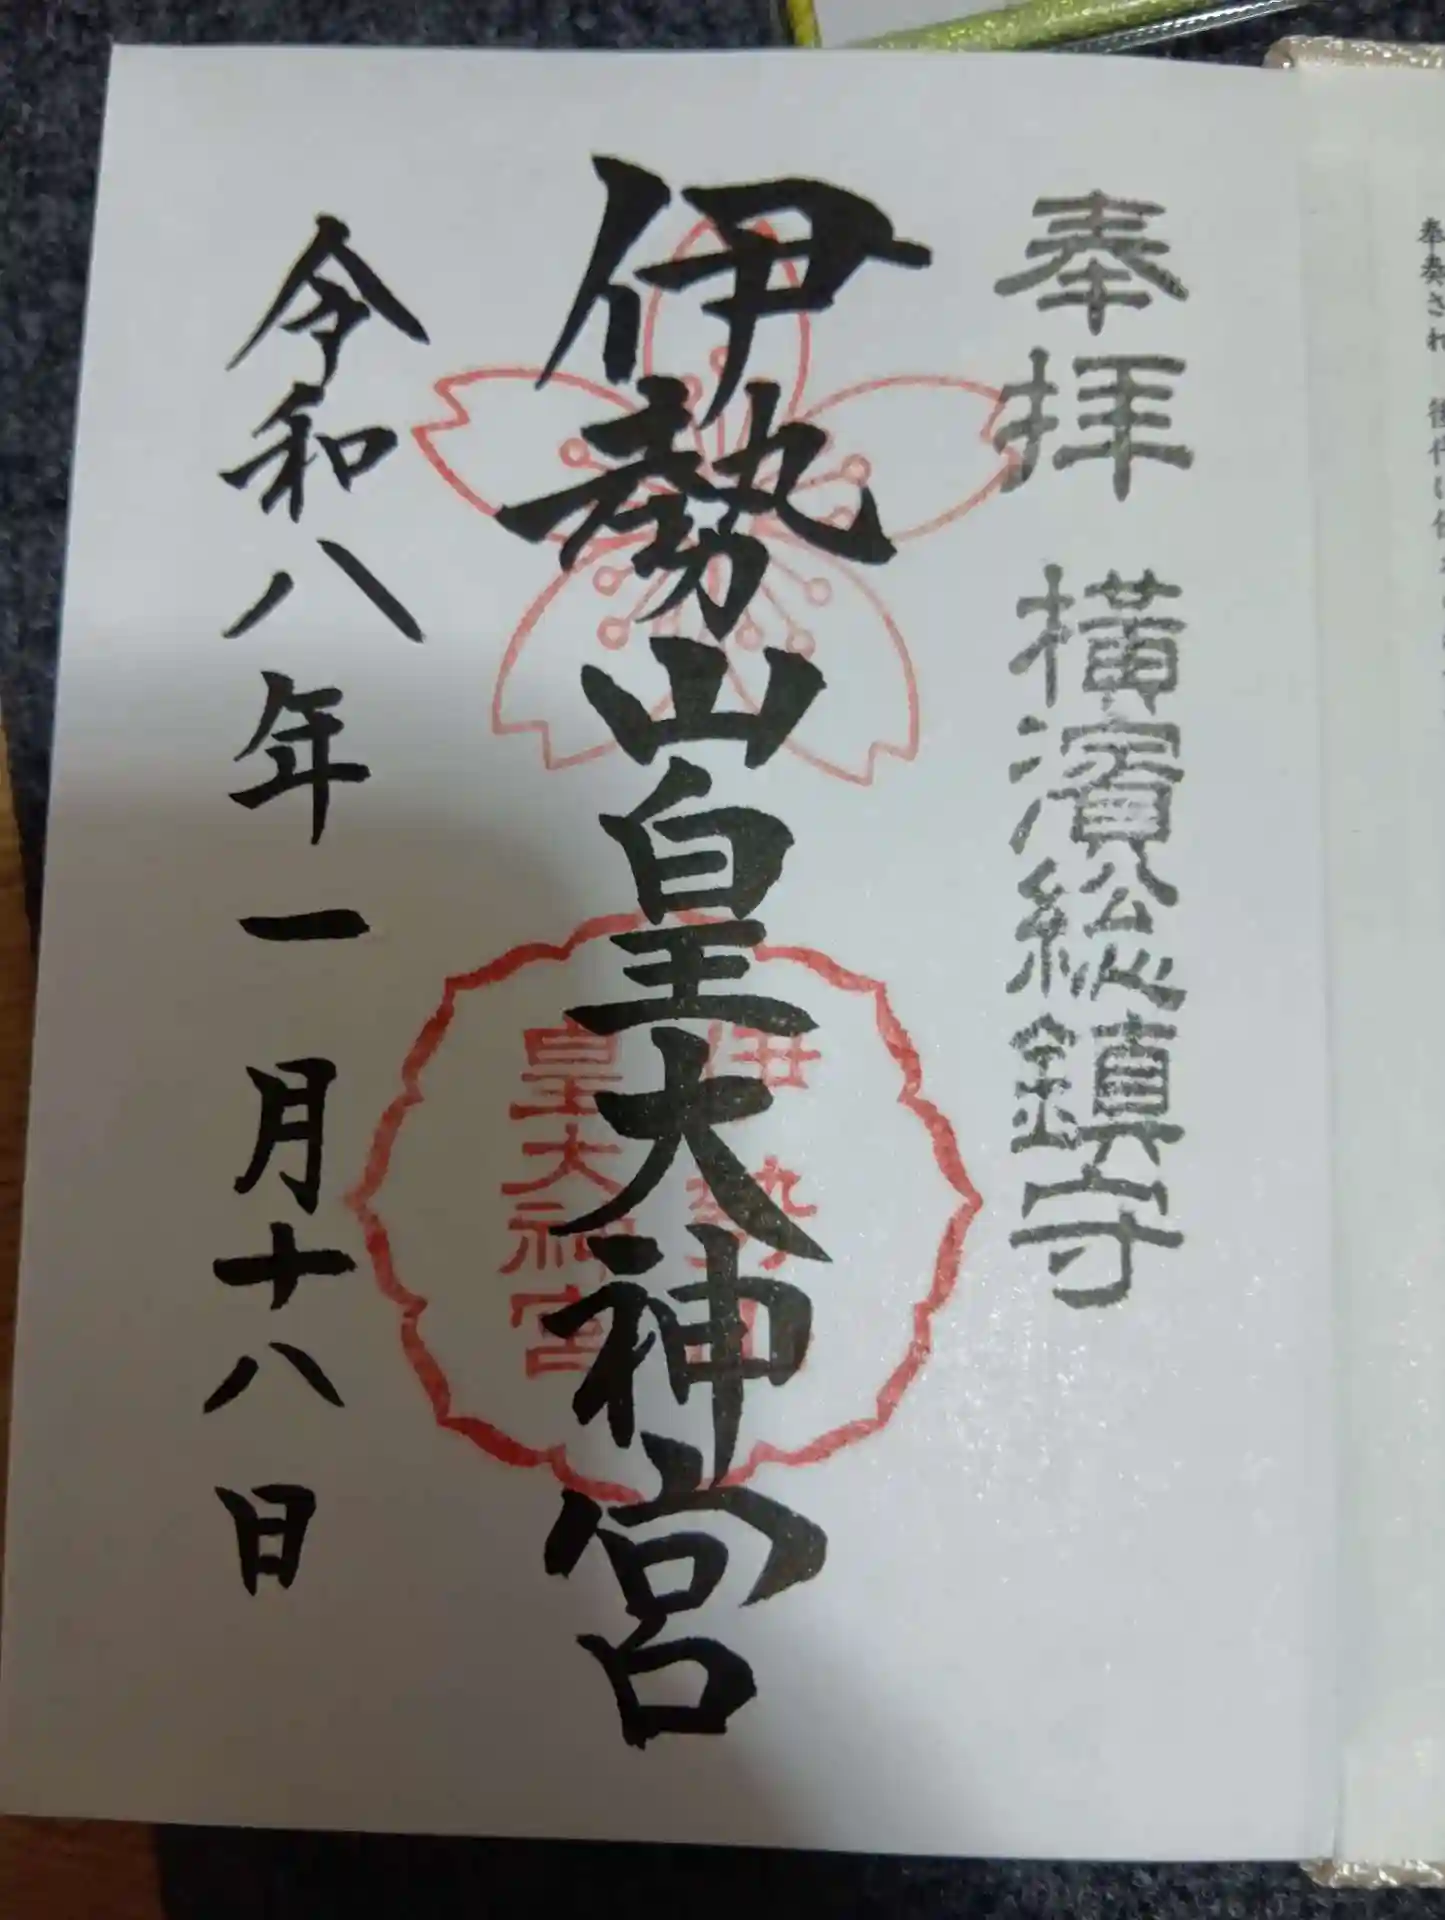 奉拝
横濱総鎮守
伊勢山皇大神宮
伊勢山
皇大神宮
令和八年一月十八日